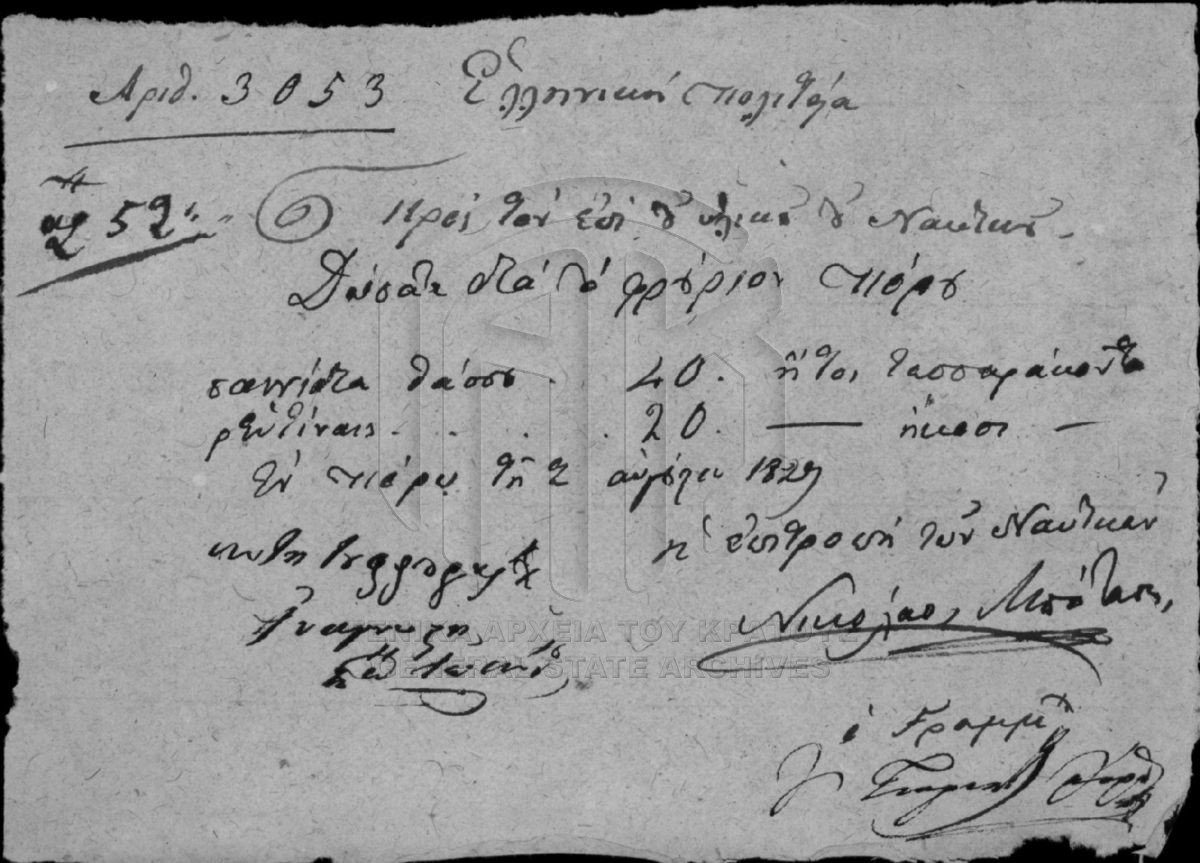 Αριθ. 3053 Ἑλληνική Πολιτεία
αρ 52
Πρός τόν ἐπί τοῦ ὑλικοῦ τοῦ Ναυτικοῦ
Δώσατε διά τό φρούριον Πόρου
σαννίδια θάσου . 40. ἤτοι τασσαράκοντα
ρετζίναις . . . . 20. — ήκοσι —
Ἐν Πόρῳ τῇ 2 αὐγούστου 1829
ἡ ἐπιτροπή τῶν Ναυτικῶν
Νικόλαος Μπόταση,
ὁ Γραμμ
ΓΕΝΙΚΑ ΑΡΧΕΙΑ ΤΟΥ ΚΡΑΤΟΥΣ
GENERAL STATE ARCHIVES